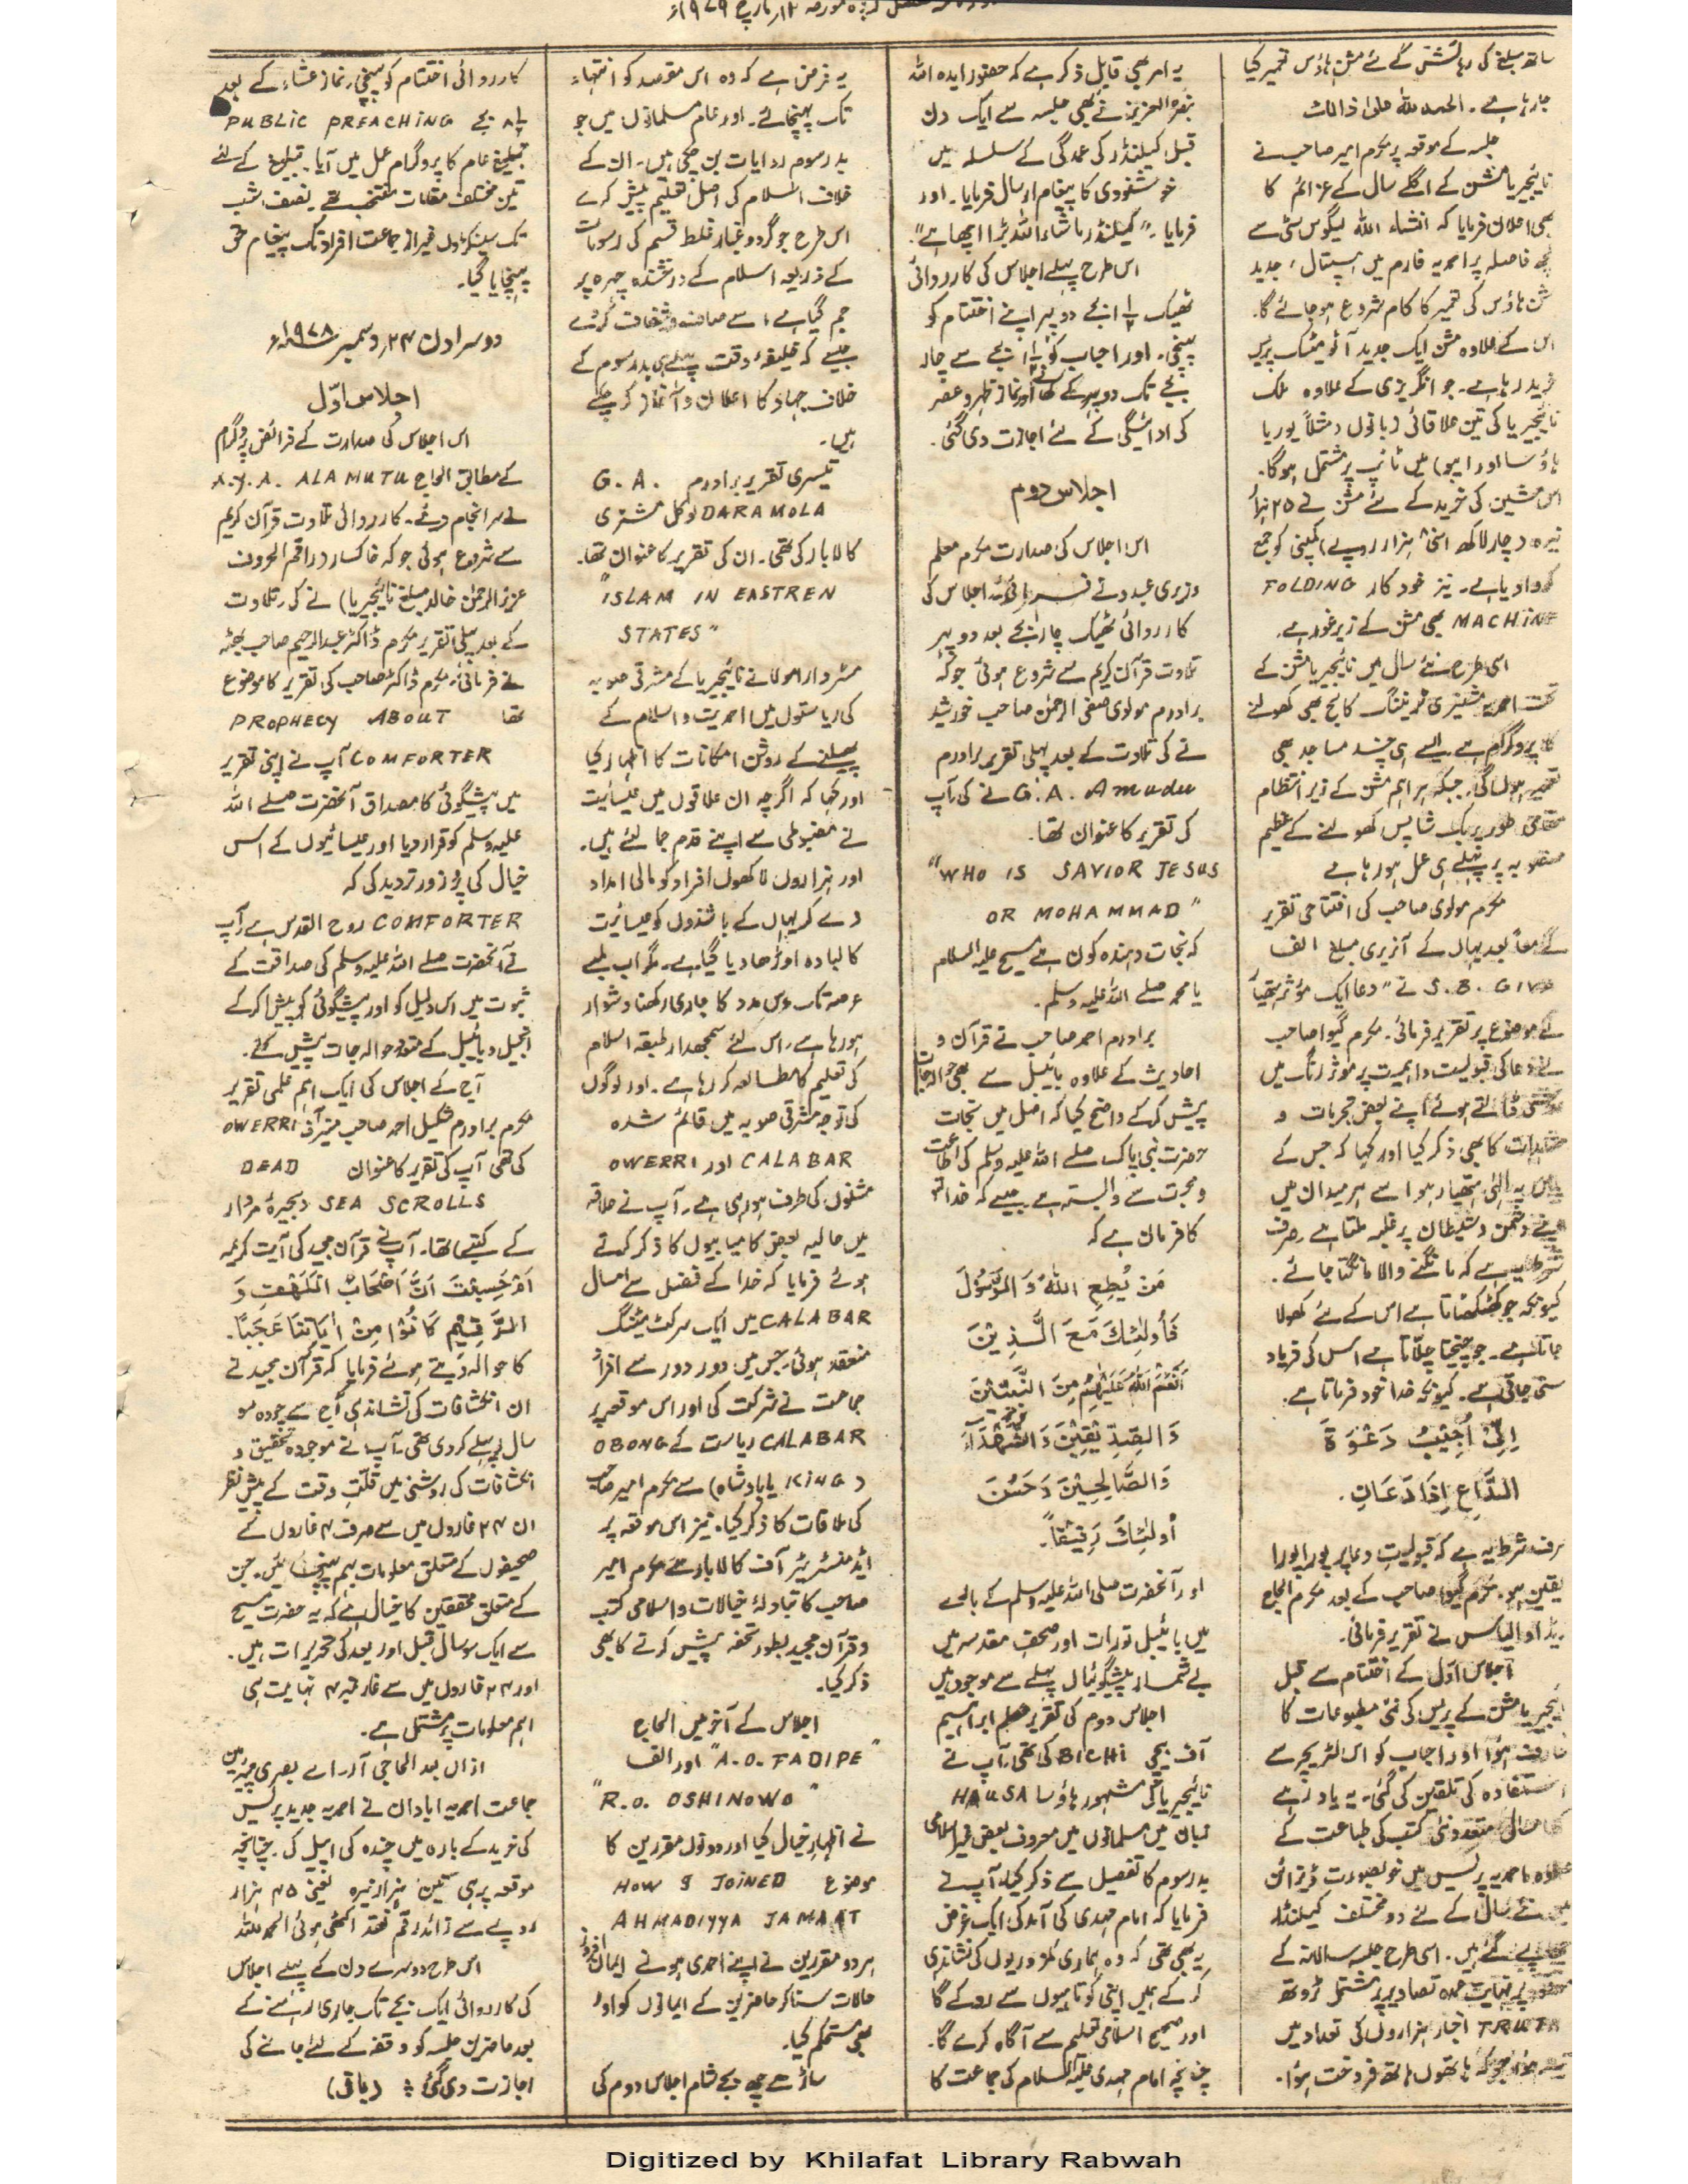 ساتھ مبلغ کی رہائش کے لئے مشن ہاؤس تعمیر کیا
جا رہا ہے۔ الحمد للہ علیٰ ذالک
جلسہ کے موقعہ پر مکرم امیر صاحب نے
نائیجیریا مشن کے اگلے سال کے عزائم کا
بھی اعلان فرمایا کہ انشاء اللہ لیگوس سٹی سے
کچھ فاصلہ پر احمدیہ فارم میں ہسپتال، جدید
مشن ہاؤس کی تعمیر کا کام شروع ہو جائے گا۔
اس کے علاوہ مشن ایک جدید آٹومیٹک پریس
خرید رہا ہے۔ جو انگریزی کے علاوہ ملک
نائیجیریا کی تین علاقائی زبانوں (مثلاً یوروبا
ہاؤسا اور ایبو) میں ٹائپ پر مشتمل ہوگا۔
اس مشین کی خرید کے لئے مشن نے ۲۵ ہزار
نیرہ (چار لاکھ ہزار روپے) کمپنی کو جمع
کروا دیا ہے۔ نیز خود کار FOLDING
MACHINE بھی مشن کے زیر غور ہے۔
اسی طرح نئے سال میں نائیجیریا مشن کے
تحت احمدیہ مشنری ٹریننگ کالج بھی کھولنے
کا پروگرام ہے ایسے ہی چند مساجد بھی
تعمیر ہوں گی۔ جبکہ ہر اہم مشن کے زیر انتظام
مقامی طور پر بک شاپس کھولنے کے عظیم
منصوبہ پر پہلے ہی عمل ہو رہا ہے
مکرم مولوی صاحب کی افتتاحی تقریر
کے معاً بعد یہاں کے آنریری مبلغ الف
S.B. GIWA نے "دعا ایک مؤثر ہتھیار"
کے موضوع پر تقریر فرمائی۔ مکرم گیوا صاحب
نے دعا کی قبولیت و اہمیت پر موثر رنگ میں
روشنی ڈالتے ہوئے اپنے بعض تجربات و
مشاہدات کا بھی ذکر کیا اور کہا کہ جس کے
پاس یہ الٰہی ہتھیار ہو اسے ہر میدان میں
اپنے دشمن و شیطان پر غلبہ ملتا ہے صرف
شرط یہ ہے کہ مانگنے والا مانگتا جائے۔
کیونکہ جو کھٹکھٹاتا ہے اس کے لئے کھولا
جاتا ہے۔ جو چیختا چلّاتا ہے اس کی فریاد
سنی جاتی ہے۔ کیونکہ خدا خود فرماتا ہے۔
اِنِّیْ اُجِیْبُ دَعْوَۃَ
الدَّاعِ اِذَا دَعَانِ۔
صرف شرط یہ ہے کہ قبولیت دعا پر پورا پورا
یقین ہو۔ مکرم گیوا صاحب کے بعد مکرم الحاج
الیاس نے تقریر فرمائی۔
اجلاس اوّل کے اختتام سے قبل
نائیجیریا مشن کے پریس کی نئی مطبوعات کا
تعارف ہوا اور احباب کو اس لٹریچر سے
استفادہ کی تلقین کی گئی۔ یہ یاد رہے
کہ امسال متعدد نئی کتب کی طباعت کے
علاوہ احمدیہ پریس میں خوبصورت ڈیزائن
میں نئے سال کے لئے دو مختلف کیلنڈر
چھاپے گئے ہیں۔ اسی طرح جلسہ سالانہ کے
موقعہ پر نہایت عمدہ تصاویر پر مشتمل ٹروتھ
TRUTH اخبار ہزاروں کی تعداد میں
جو کہ ہاتھوں ہاتھ فروخت ہوا۔
یہ امر بھی قابل ذکر ہے کہ حضور ایدہ اللہ
بنصرہ العزیز نے بھی جلسہ سے ایک دن
قبل کیلنڈر کی عمدگی کے سلسلہ میں
خوشنودی کا پیغام ارسال فرمایا۔ اور
فرمایا۔ "کیلنڈر ماشاء اللہ بڑا اچھا ہے"۔
اس طرح پہلے اجلاس کی کارروائی
ٹھیک ½۱ بجے دوپہر اپنے اختتام کو
پہنچی۔ اور احباب کو ½۱ بجے سے چار
بجے تک دوپہر کے کھانے اور نماز ظہر و عصر
کی ادائیگی کے لئے اجازت دی گئی۔
اجلاس دوم
اس اجلاس کی صدارت مکرم معلم
وزیری عبدو نے فرمائی اجلاس کی
کارروائی ٹھیک چار بجے بعد دوپہر
تلاوت قرآن کریم سے شروع ہوئی جو کہ
برادرم مولوی صفی الرحمٰن صاحب خورشید
نے کی تلاوت کے بعد پہلی تقریر برادرم
G.A. Amudu نے کی۔ آپ
کی تقریر کا عنوان تھا۔
"WHO IS SAVIOR JESUS
OR MOHAMMAD"
کہ نجات دہندہ کون ہے مسیح علیہ السلام
یا محمد صلے اللہ علیہ وسلم۔
برادرم احمد صاحب نے قرآن و
احادیث کے علاوہ بائیبل سے بھی حوالہ جات
پیش کر کے واضح کیا کہ اصل میں نجات
حضرت نبی پاک صلے اللہ علیہ وسلم کی اطاعت
و محبت سے وابستہ ہے۔ جیسے کہ خدا تعالیٰ
کا فرمان ہے کہ
مَنْ یُّطِعِ اللہَ وَ الرَّسُوْلَ
فَاُولٰئِکَ مَعَ الَّذِیْنَ
اَنْعَمَ اللہُ عَلَیْھِمْ مِنَ النَّبِیّٖنَ
وَ الصِّدِّیْقِیْنَ وَ الشُّھَدَآءِ
وَالصَّالِحِیْنَ وَ حَسُنَ
اُولٰئِکَ رَفِیْقاً۔
اور آنحضرت صلی اللہ علیہ وسلم کے بارے
میں بائیبل تورات اور صحف مقدسہ میں
بے شمار پیشگوئیاں پہلے سے موجود ہیں
اجلاس دوم کی تقریر معلم ابراہیم
آف بچی BICHI کی تھی۔ آپ نے
نائیجیریا کی مشہور ہاؤسا HAUSA
زبان میں مسلمانوں میں معروف بعض غیر اسلامی
بد رسوم کا تفصیل سے ذکر کیا۔ آپ نے
فرمایا کہ امام مہدی کی آمد کی ایک غرض
یہ بھی تھی کہ وہ ہماری کمزوریوں کی نشاندہی
کر کے ہمیں اپنی کوتاہیوں سے روکے گا
اور صحیح اسلامی تعلیم سے آگاہ کرے گا۔
چنانچہ امام مہدی علیہ السلام کی جماعت کا
یہ فرض ہے کہ وہ اس مقصد کو انتہاء
تک پہنچائے۔ اور عام مسلمانوں میں جو
بد رسوم روایات بن چکی ہیں۔ ان کے
خلاف اسلام کی اصل تعلیم پیش کرے
اس طرح جو گرد و غبار غلط قسم کی رسومات
کے ذریعہ اسلام کے درخشندہ چہرہ پر
جم گیا ہے، اسے صاف و شفاف کرے
جیسے کہ خلیفۂ وقت پہلے ہی بد رسوم کے
خلاف جہاد کا اعلان و آغاز کر چکے
ہیں۔
تیسری تقریر برادرم G.A.
DARAMOLA لوکل مشنری
کالابار کی تھی۔ ان کی تقریر کا عنوان تھا۔
"ISLAM IN EASTREN
STATES"
مسٹر دارامولا نے نائیجیریا کے مشرقی صوبہ
کی ریاستوں میں احمدیت و اسلام کے
پھیلنے کے روشن امکانات کا اظہار کیا
اور کہا کہ اگرچہ ان علاقوں میں عیسائیت
نے مضبوطی سے اپنے قدم جما لئے ہیں۔
اور ہزاروں لاکھوں افراد کو مالی امداد
دے کر یہاں کے باشندوں کو عیسائیت
کا لبادہ اوڑھا دیا گیا ہے۔ مگر اب لمبے
عرصہ تک اس مدد کا جاری رکھنا دشوار
ہو رہا ہے۔ اس لئے سمجھدار طبقہ اسلام
کی تعلیم کا مطالعہ کر رہا ہے۔ اور لوگوں
کی توجہ مشرقی صوبہ میں قائم شدہ
CALABAR اور OWERRI
مشنوں کی طرف ہو رہی ہے۔ آپ نے علاقہ
میں حالیہ بعض کامیابیوں کا ذکر کرتے
ہوئے فرمایا کہ خدا کے فضل سے امسال
CALABAR میں ایک سرکٹ میٹنگ
منعقد ہوئی۔ جس میں دور دور سے افراد
جماعت نے شرکت کی اور اس موقعہ پر
CALABAR ریاست کے OBONG
(KING یا بادشاہ) سے مکرم امیر صاحب
کی ملاقات کا ذکر کیا۔ نیز اس موقعہ پر
ایڈمنسٹریٹر آف کالابار سے مکرم امیر
صاحب کا تبادلۂ خیالات و اسلامی کتب
و قرآن مجید بطور تحفہ پیش کرنے کا بھی
ذکر کیا۔
اجلاس کے آخر میں الحاج
"A.O. FADIPE" اور الف
"R.O. OSHINOWO"
نے اظہار خیال کیا اور دونوں مقررین کا
موضوع HOW I JOINED
AHMADIYYA JAMAAT
ہر دو مقررین نے اپنے احمدی ہونے ایمان افروز
حالات سنا کر حاضرین کے ایمانوں کو اور
بھی مستحکم کیا۔
ساڑھے چھ بجے شام اجلاس دوم کی
کارروائی اختتام کو پہنچی۔ نماز عشاء کے بعد
½۸ بجے PUBLIC PREACHING
تبلیغ عام کا پروگرام عمل میں آیا۔ تبلیغ کے لئے
تین مختلف مقامات منتخب تھے۔ نصف شب
تک سینکڑوں غیر از جماعت افراد تک پیغام حق
پہنچایا گیا۔
دوسرا دن ۲۴؍دسمبر ۱۹۷۸ء
اجلاس اوّل
اس اجلاس کی صدارت کے فرائض پروگرام
کے مطابق الحاج A.Y.A. ALAMUTU
نے سر انجام دیئے۔ کارروائی تلاوت قرآن کریم
سے شروع ہوئی جو کہ خاکسار (راقم الحروف
عزیز الرحمٰن خالد مبلغ نائیجیریا) نے کی۔ تلاوت
کے بعد پہلی تقریر مکرم ڈاکٹر عبد الرحیم صاحب بھٹہ
نے فرمائی۔ مکرم ڈاکٹر صاحب کی تقریر کا موضوع
تھا PROPHECY ABOUT
COMFORTER آپ نے اپنی تقریر
میں پیشگوئی کا مصداق آنحضرت صلے اللہ
علیہ وسلم کو قرار دیا اور عیسائیوں کے اس
خیال کی پُر زور تردید کی کہ
COMFORTER روح القدس ہے۔ آپ
نے آنحضرت صلے اللہ علیہ وسلم کی صداقت کے
ثبوت میں اس دلیل کو اور پیشگوئی کو پیش کر کے
انجیل و بائیبل کے متعدد حوالہ جات پیش کئے۔
آج کے اجلاس کی ایک اہم علمی تقریر
مکرم برادرم شکیل احمد صاحب منیر آف OWERRI
کی تھی آپ کی تقریر کا عنوان DEAD
SEA SCROLLS (بحیرۂ مردار
کے کتبے) تھا۔ آپ نے قرآن مجید کی آیت کریمہ
اَمْ حَسِبْتَ اَنَّ اَصْحَابَ الْکَھْفِ وَ
الرَّقِیْمِ کَانُوْا مِنْ اٰیَاتِنَا عَجَبًا۔
کا حوالہ دیتے ہوئے فرمایا کہ قرآن مجید نے
ان انکشافات کی نشاندہی آج سے چودہ سو
سال پہلے کر دی تھی۔ آپ نے موجودہ تحقیق و
انکشافات کی روشنی میں قلّتِ وقت کے پیش نظر
ان ۲۴ غاروں میں سے صرف ۴ غاروں کے
صحیفوں کے متعلق معلومات بہم پہنچائیں۔ جن
کے متعلق محققین کا خیال ہے کہ یہ حضرت مسیح
سے ایک سو سال قبل اور بعد کی تحریرات ہیں۔
اور ۲۴ غاروں میں سے غار نمبر ۴ نہایت ہی
اہم معلومات پر مشتمل ہے۔
ازاں بعد الحاجی آر۔ اے بصری چیئرمین
جماعت احمدیہ ابادان نے احمدیہ جدید پریس
کی خرید کے بارہ میں چندہ کی اپیل کی۔ چنانچہ
موقعہ پر ہی تین ہزار نیرہ یعنی ۴۵ ہزار
روپے سے زائد رقم نقد اکٹھی ہوئی الحمد للہ
اس طرح دوسرے دن کے پہلے اجلاس
کی کارروائی ایک بجے تک جاری رہنے کے
بعد حاضرین جلسہ کو وقفہ کے لئے جانے کی
اجازت دی گئی ÷ (باقی)
Digitized by Khilafat Library Rabwah